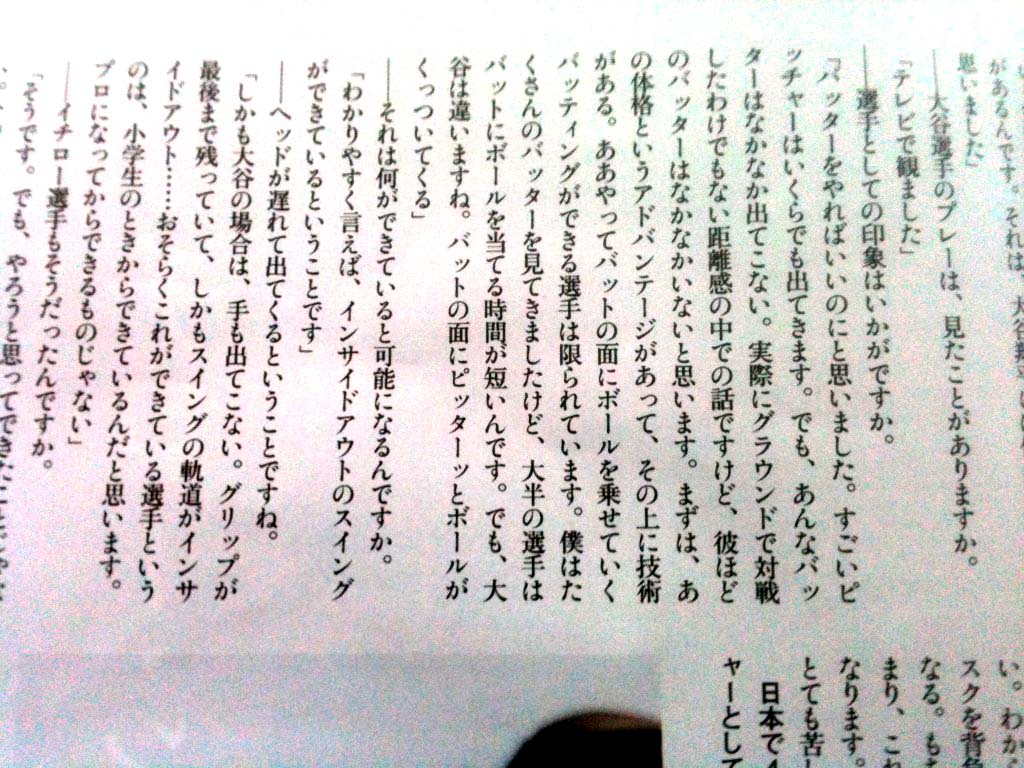 があるんです。それは、大谷翔
思いました」
──大谷選手のプレーは、見たことがありますか。
「テレビで観ました」
──選手としての印象はいかがですか。
「バッターをやればいいのにと思いました。すごいピ
ッチャーはいくらでも出てきます。でも、あんなバッ
ターはなかなか出てこない。実際にグラウンドで対戦
したわけでもない距離感の中での話ですけど、彼ほど
のバッターはなかなかいないと思います。まずは、あ
の体格というアドバンテージがあって、その上に技術
がある。ああやってバットの面にボールを乗せていく
バッティングができる選手は限られています。僕はた
くさんのバッターを見てきましたけど、大半の選手は
バットにボールを当てる時間が短いんです。でも、大
谷は違いますね。バットの面にピッターッとボールが
くっついてくる」
──それは何ができていると可能になるんですか。
「わかりやすく言えば、インサイドアウトのスイング
ができているということです」
──ヘッドが遅れて出てくるということですね。
「しかも大谷の場合は、手も出てこない。グリップが
最後まで残っていて、しかもスイングの軌道がインサ
イドアウト……おそらくこれができている選手という
のは、小学生のときからできているんだと思います。
プロになってからできるものじゃない」
──イチロー選手もそうだったんですか。
「そうです。でも、やろうと思ってできたことじゃな
い。わから
スクを背負
なる。もち
まり、これ
なります。
とても苦し
日本で4
ャーとして